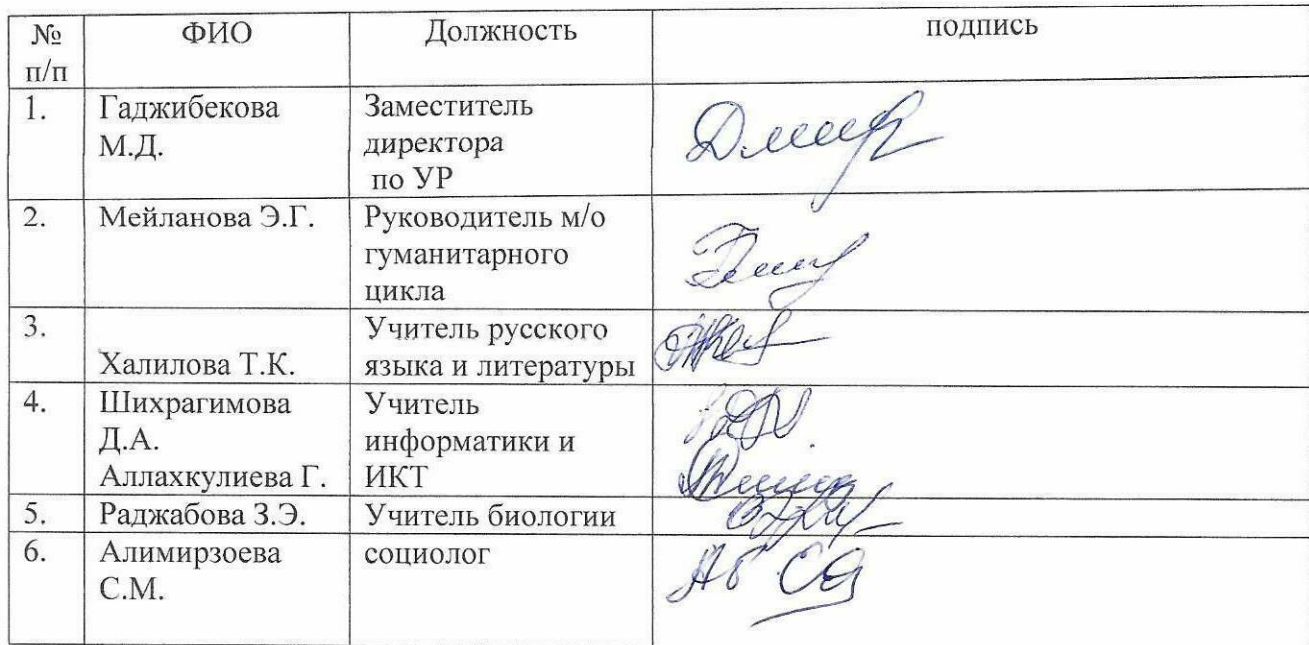 № п/п ФИО Должность подпись
1. Гаджибекова М.Д. Заместитель директора по УР
2. Мейланова Э.Г. Руководитель м/о гуманитарного цикла
3. Халилова Т.К. Учитель русского языка и литературы
4. Шихрагимова Д.А. Аллахкулиева Г. Учитель информатики и ИКТ
5. Раджабова З.Э. Учитель биологии
6. Алимирзоева С.М. социолог